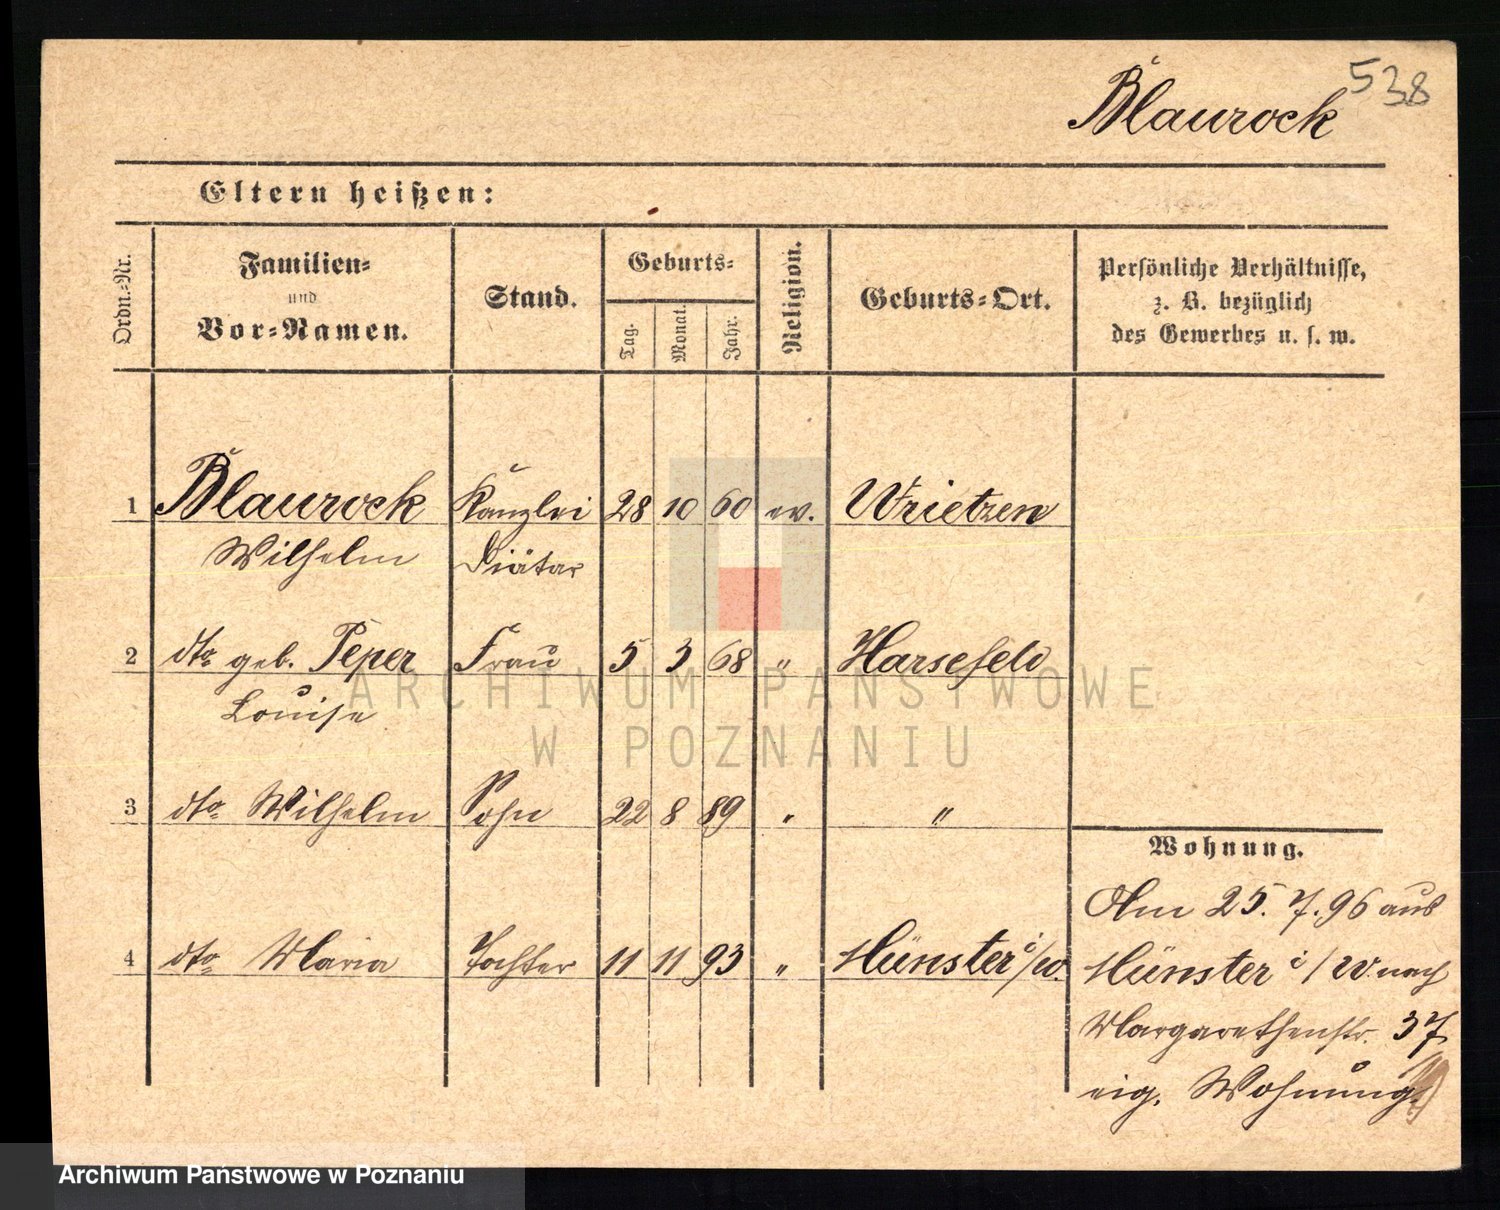 538
Blaurock
Eltern heißen:
Ordn.-Nr.
Familien-
und
Vor-Namen.
Stand.
Geburts-
Tag.
Monat.
Jahr.
Religion.
Geburts-Ort.
Persönliche Verhältnisse,
z. B. bezüglich
des Gewerbes u. s. w.
1 Blaurock Kanzlei 28 10 60 ev. Wrietzen
Wilhelm Diätar
2 dto geb. Peper Frau 5 3 68 " Harsefeld
Louise
3 dto Wilhelm Sohn 22 8 89 " "
4 dto Maria Tochter 11 11 93 " Münster i/W.
Wohnung.
Am 25.7.96 aus
Münster i/W. nach
Margarethenstr. 37
eig. Wohnung
ARCHIWUM PAŃSTWOWE
W POZNANIU
Archiwum Państwowe w Poznaniu